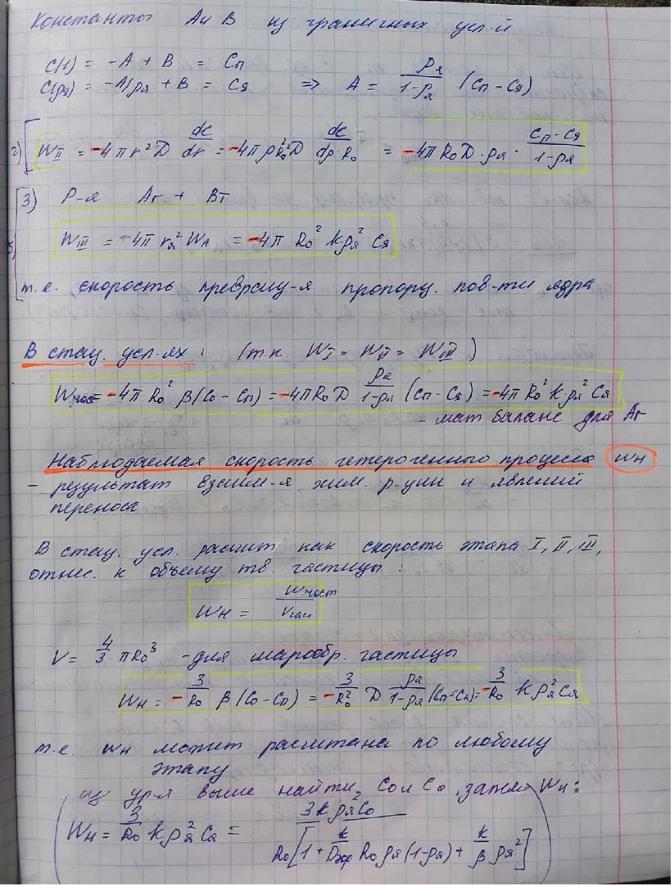 Константы A и B из граничных усл-й
C(1) = -A + B = Cп
C(ρя) = -A/ρя + B = Cя => A = ρя/(1-ρя) (Cп - Cя)
2) W_II = -4πr²D dc/dr = -4πρ²R₀²D dc/(dρ·R₀) = -4πR₀D·ρя·(Cп - Cя)/(1-ρя)
3) Р-я Aг + Bт
W_III = -4π rя² W_A = -4π R₀² k ρя² Cя
т.е. скорость превращ-я пропорц. пов-ти ядра
В стац. усл-ях: (тк W_I = W_II = W_III)
Wчаст = -4π R₀² β(C₀ - Cп) = -4πR₀D ρя/(1-ρя) (Cп - Cя) = -4πR₀² k ρя² Cя
- мат баланс для Aг
Наблюдаемая скорость гетерогенного процесса Wн
- результат взаим-я хим. р-ции и явлений
переноса
В стац. усл. расчит как скорость этапа I, II, III,
отнес. к объему тв частицы:
Wн = Wчаст/Vчаст
V = 4/3 πR₀³ - для шарообр. частицы
Wн = -3/R₀ β(C₀ - Cп) = -3/R₀² D ρя/(1-ρя) (Cп - Cя) = -3/R₀ k ρя² Cя
т.е. Wн может расчитана по любому
этапу
из ур-я выше найти, C₀, затем Wн:
Wн = 3/R₀ k ρя² Cя = 3kρя²C₀ / R₀[1 + k/Dэф R₀ρя(1-ρя) + k/β ρя²]